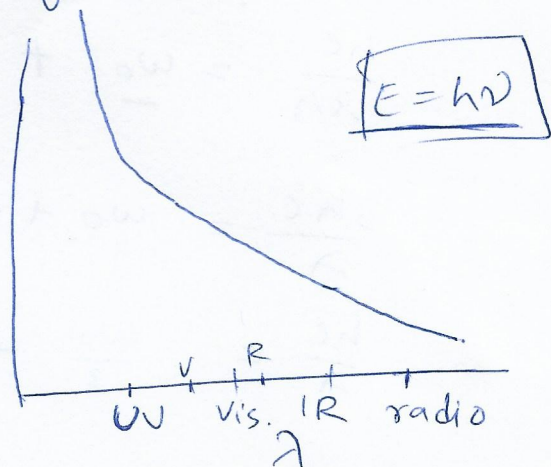 E = hν
V R
UV Vis. IR radio
λ